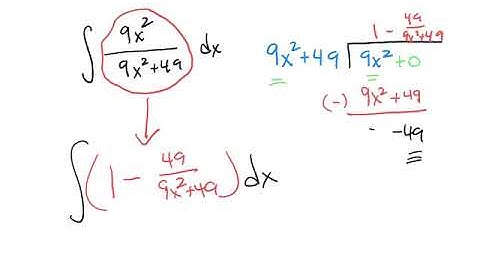 ∫ 9x²/(9x²+49) dx
1 - 49/(9x²+49)
9x²+49 ) 9x² + 0
(-) 9x² + 49
-49
∫ (1 - 49/(9x²+49)) dx